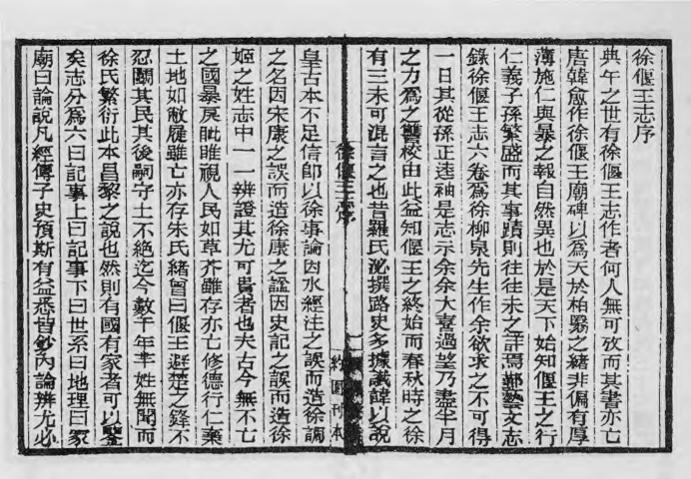 徐偃王志序
典午之世有徐偃王志作者何人無可攷而其書亦亡
唐韓愈作徐偃王廟碑以爲天於柏翳之緒非偏有厚
薄施仁與暴之報自然異也於是天下始知偃王之行
仁義子孫繁盛而其事蹟則往往未之詳焉鄞藝文志
錄徐偃王志六卷爲徐柳泉先生作余欲求之不可得
一日其從孫正逵袖是志示余余大喜過望乃盡半月
之力爲之讐校由此益知偃王之終始而春秋時之徐
有三未可混言之也昔羅氏泌撰路史多據讖諱以說
徐偃王志序
一
約園刊本
皇古本不足信卽以徐事論因水經注之誤而造徐調
之名因宋康之誤而造徐康之諡因史記之誤而造徐
姬之姓志中一一辨證其尤可貴者也夫古今無不亡
之國暴戾眦睢視人民如草芥雖存亦亡修德行仁棄
土地如敝屣雖亡亦存朱氏緒曾曰偃王避楚之鋒不
忍鬭其民其後嗣守土不絕迄今數千年芈姓無聞而
徐氏繁衍此本昌黎之說也然則有國有家者可以鑒
矣志分爲六曰記事上曰記事下曰世系曰地理曰冢
廟曰論說凡經傳子史預斯有益悉皆鈔內論辨尤必